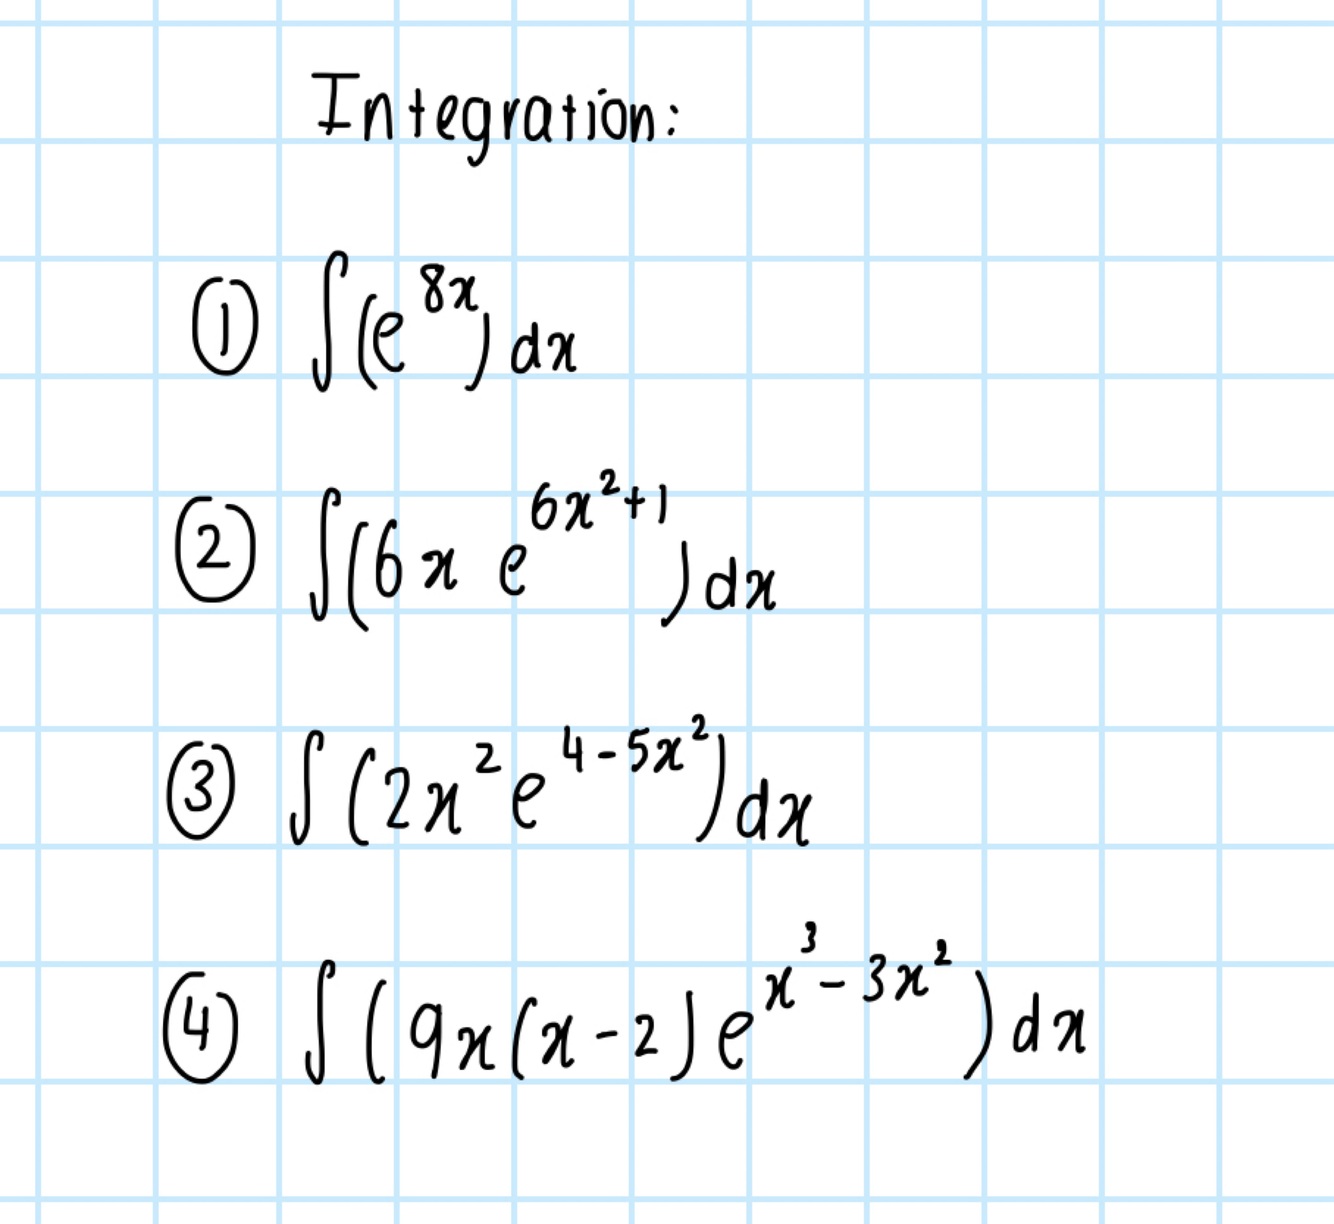 Integration:
① ∫(e^{8x}) dx
② ∫(6x e^{6x²+1}) dx
③ ∫(2x² e^{4-5x²}) dx
④ ∫(9x(x-2) e^{x³-3x²}) dx